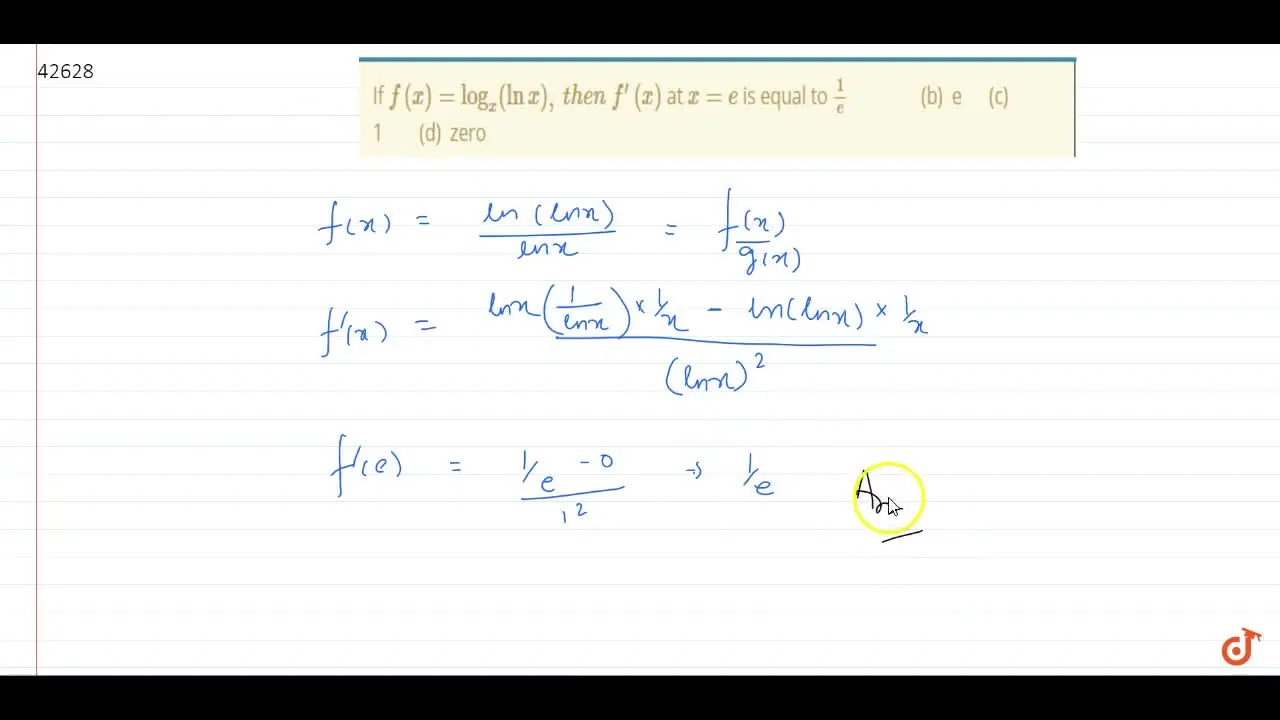 42628
If f(x) = logₓ(ln x), then f′(x) at x = e is equal to 1/e (b) e (c)
1 (d) zero
f(x) = ln(lnx)/lnx = f(x)/g(x)
f'(x) = (lnx(1/lnx) × 1/x - ln(lnx) × 1/x)/(lnx)²
f'(e) = (1/e - 0)/1² → 1/e